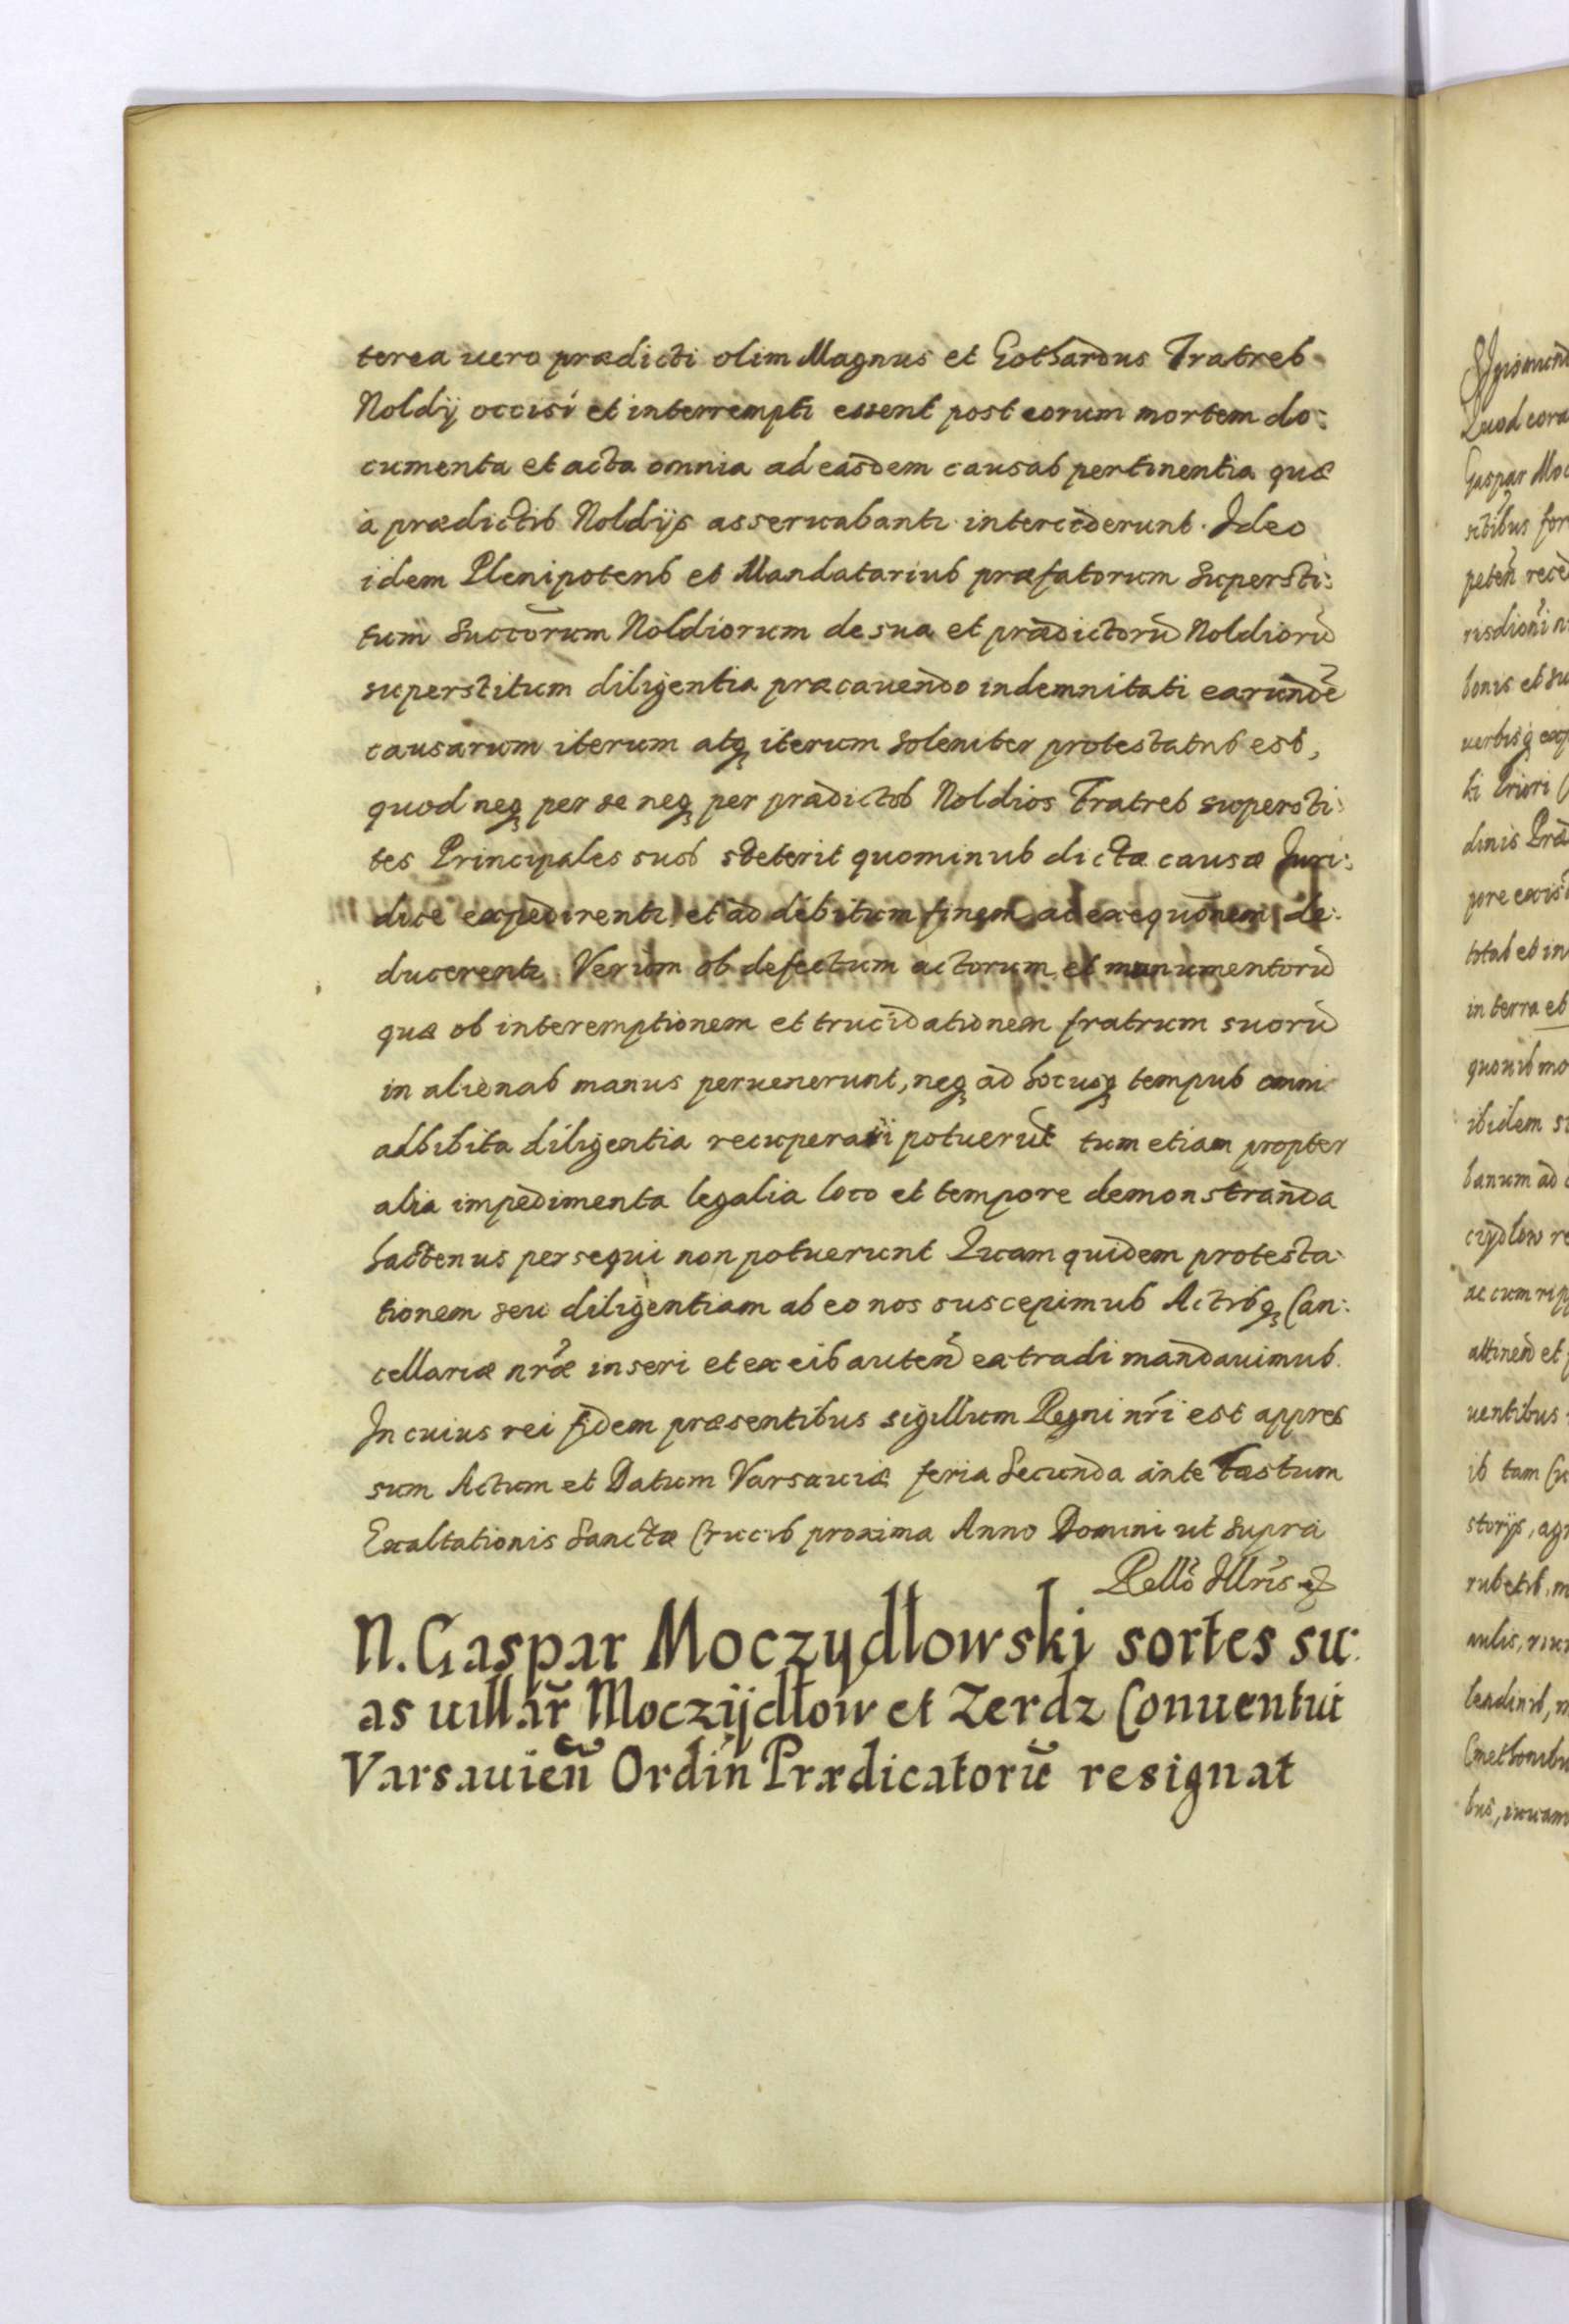 terea uero prædicti olim Magnus et Gothardus Fratres
Noldij occisi et interrempti essent post eorum mortem do:
cumenta et acta omnia ad easdem causas pertinentia quæ
à prædictis Noldijs asseruabantr interciderunt. Ideo
idem Plenipotens et Mandatarius præfatorum Supersti:
tum Succõrum Noldiorum de sua et prædictorũ Noldiorũ
superstitum diligentia præcauendo indemnitati earundẽ
causarum iterum atq iterum solemniter protestatus est,
quod neq per se neq per prædictos Noldios Fratres supersti:
tes Principales suos steterit quominus dictæ causæ Juri:
dice expedirentr et ad debitum finem ad exequõnem de:
ducerentr. Verùm ob defectum actorum et munumentorũ
quæ ob interemptionem et trucidationem fratrum suorũ
in alienas manus peruenerunt, neq ad hocusq tempus omni
adhibita diligentia recuperari potuerũt tum etiam propter
alia impedimenta legalia loco et tempore demonstranda
hactenus persequi non potuerunt Quam quidem protesta:
tionem seu diligentiam ab eo nos suscepimus Actisq Can:
cellariæ nrã inseri et ex eis auten̄ extradi mandauimus.
In cuius rei fidem præsentibus sigillum Regni nr̃i est appres
sum Actum et Datum Varsauiæ feria Secunda ante Festum
Exaltationis Sanctæ Crucis proxima Anno Domini ut supra
Rellõ Illr̃is
N. Gaspar Moczydłowski sortes su:
as uillar̃ Moczijdłow et Zerdz Conuentui
Varsauieñ Ordiñ Prædicatorũ resignat
Quod cora
Gaspar Moc
peteñ rece
bonis et su
uerbisq exp
ti Priori
dinis Præd
pore exist
totas et in
in terra et
quouis mo
ibidem si
banum ad
cydlow re
ac cum
attineñ et
uentibus
is tam
storijs, agr
rubetis, m